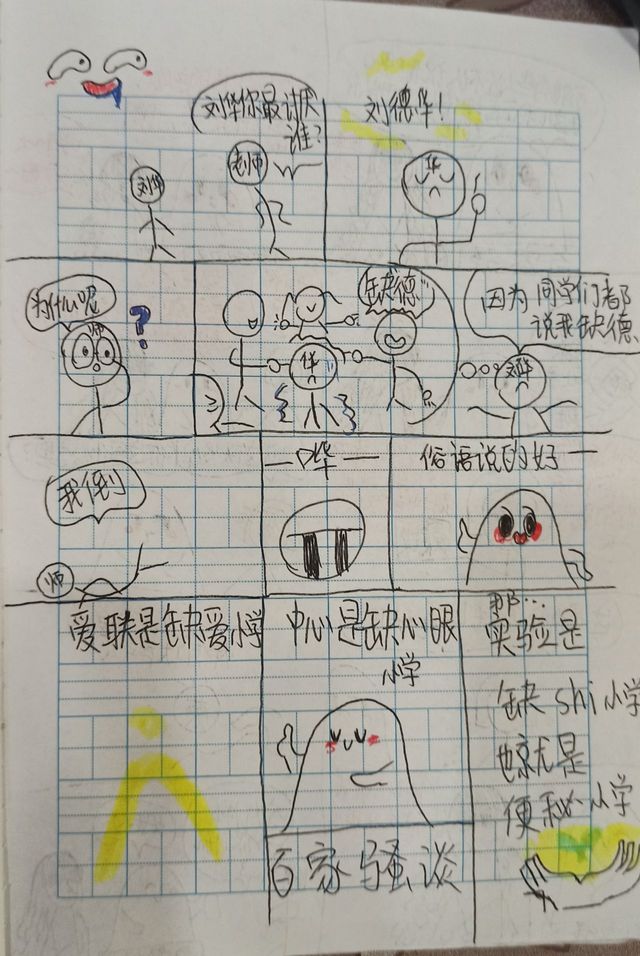 刘华你最讨厌
谁?
刘华
老师
刘德华!
华
为什么呢
师
?
缺德
华
因为同学们都
说我缺德、
刘华
我倒
师
一哗一
俗语说的好一
爱联是缺爱小学
中心是缺心眼
小学
那…
实验是
缺shi小学
也就是
便秘小学
百家骚谈